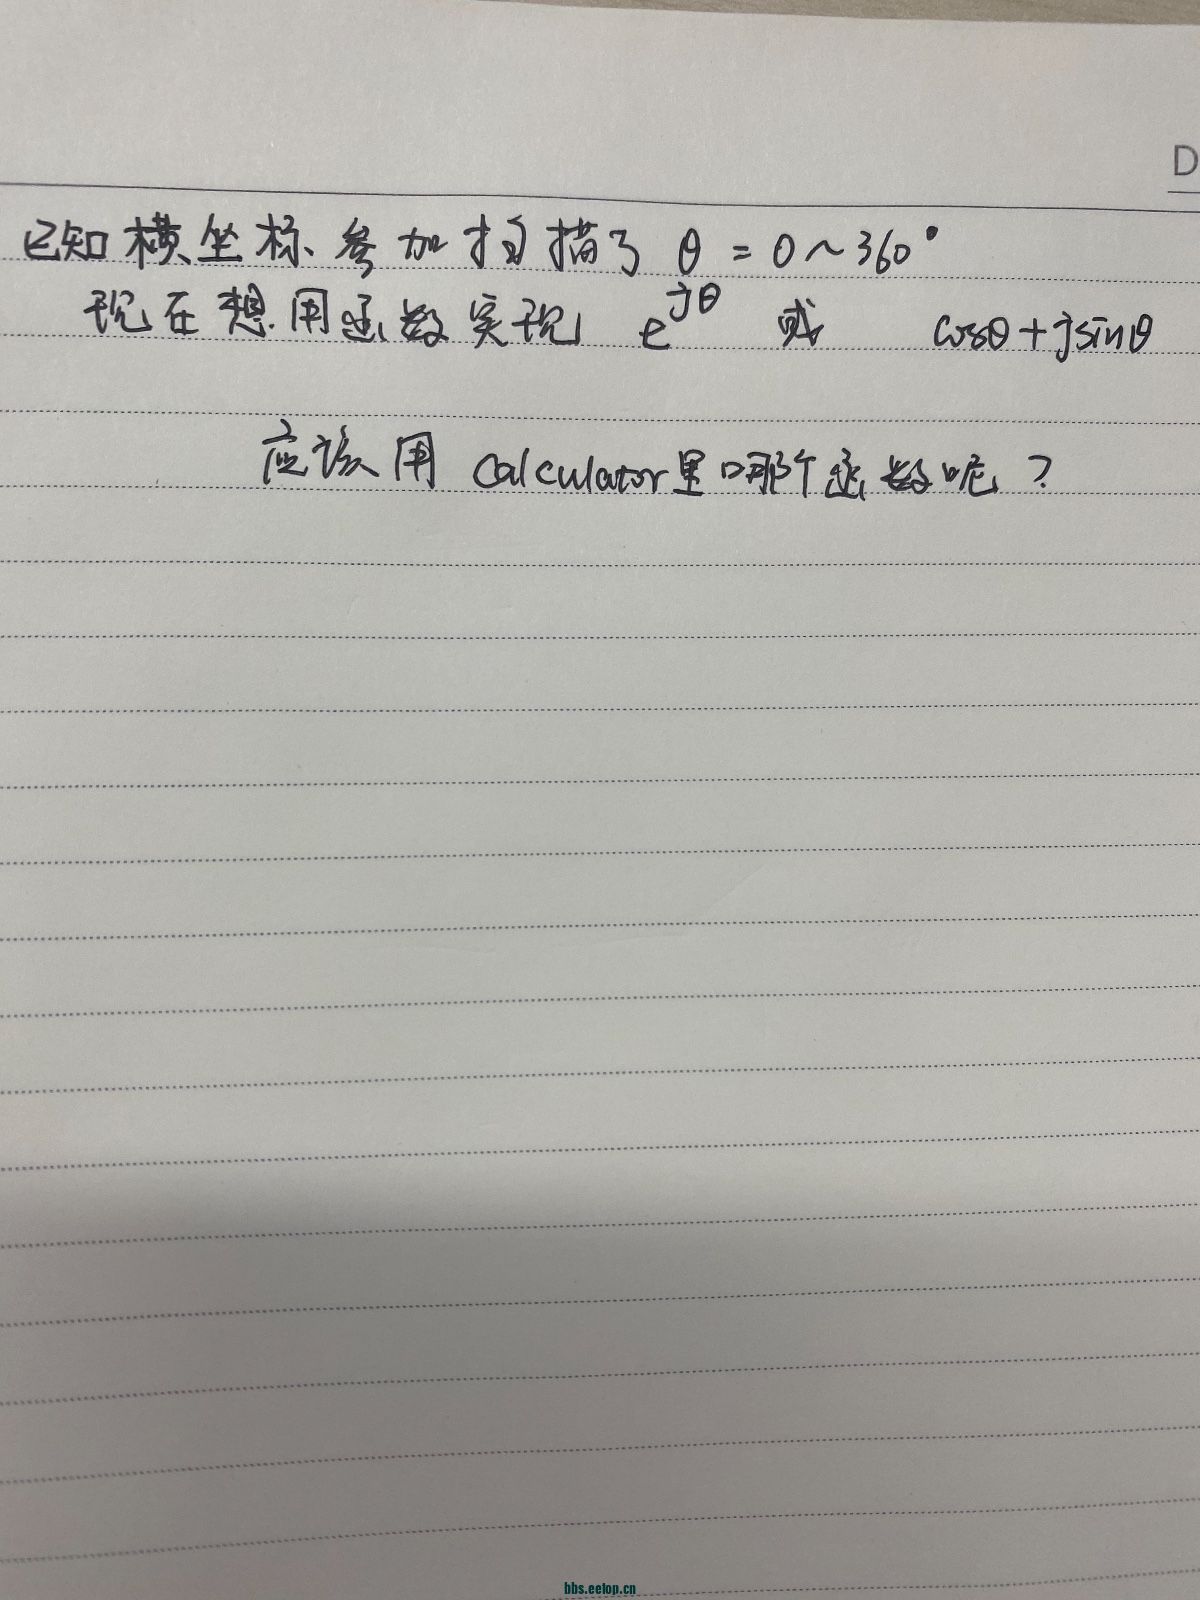 D
已知横坐标参加扫描了 θ = 0～360°
现在想用函数实现 e^jθ 或 cosθ+jsinθ
应该用 calculator里哪个函数呢？
bbs.eetop.cn